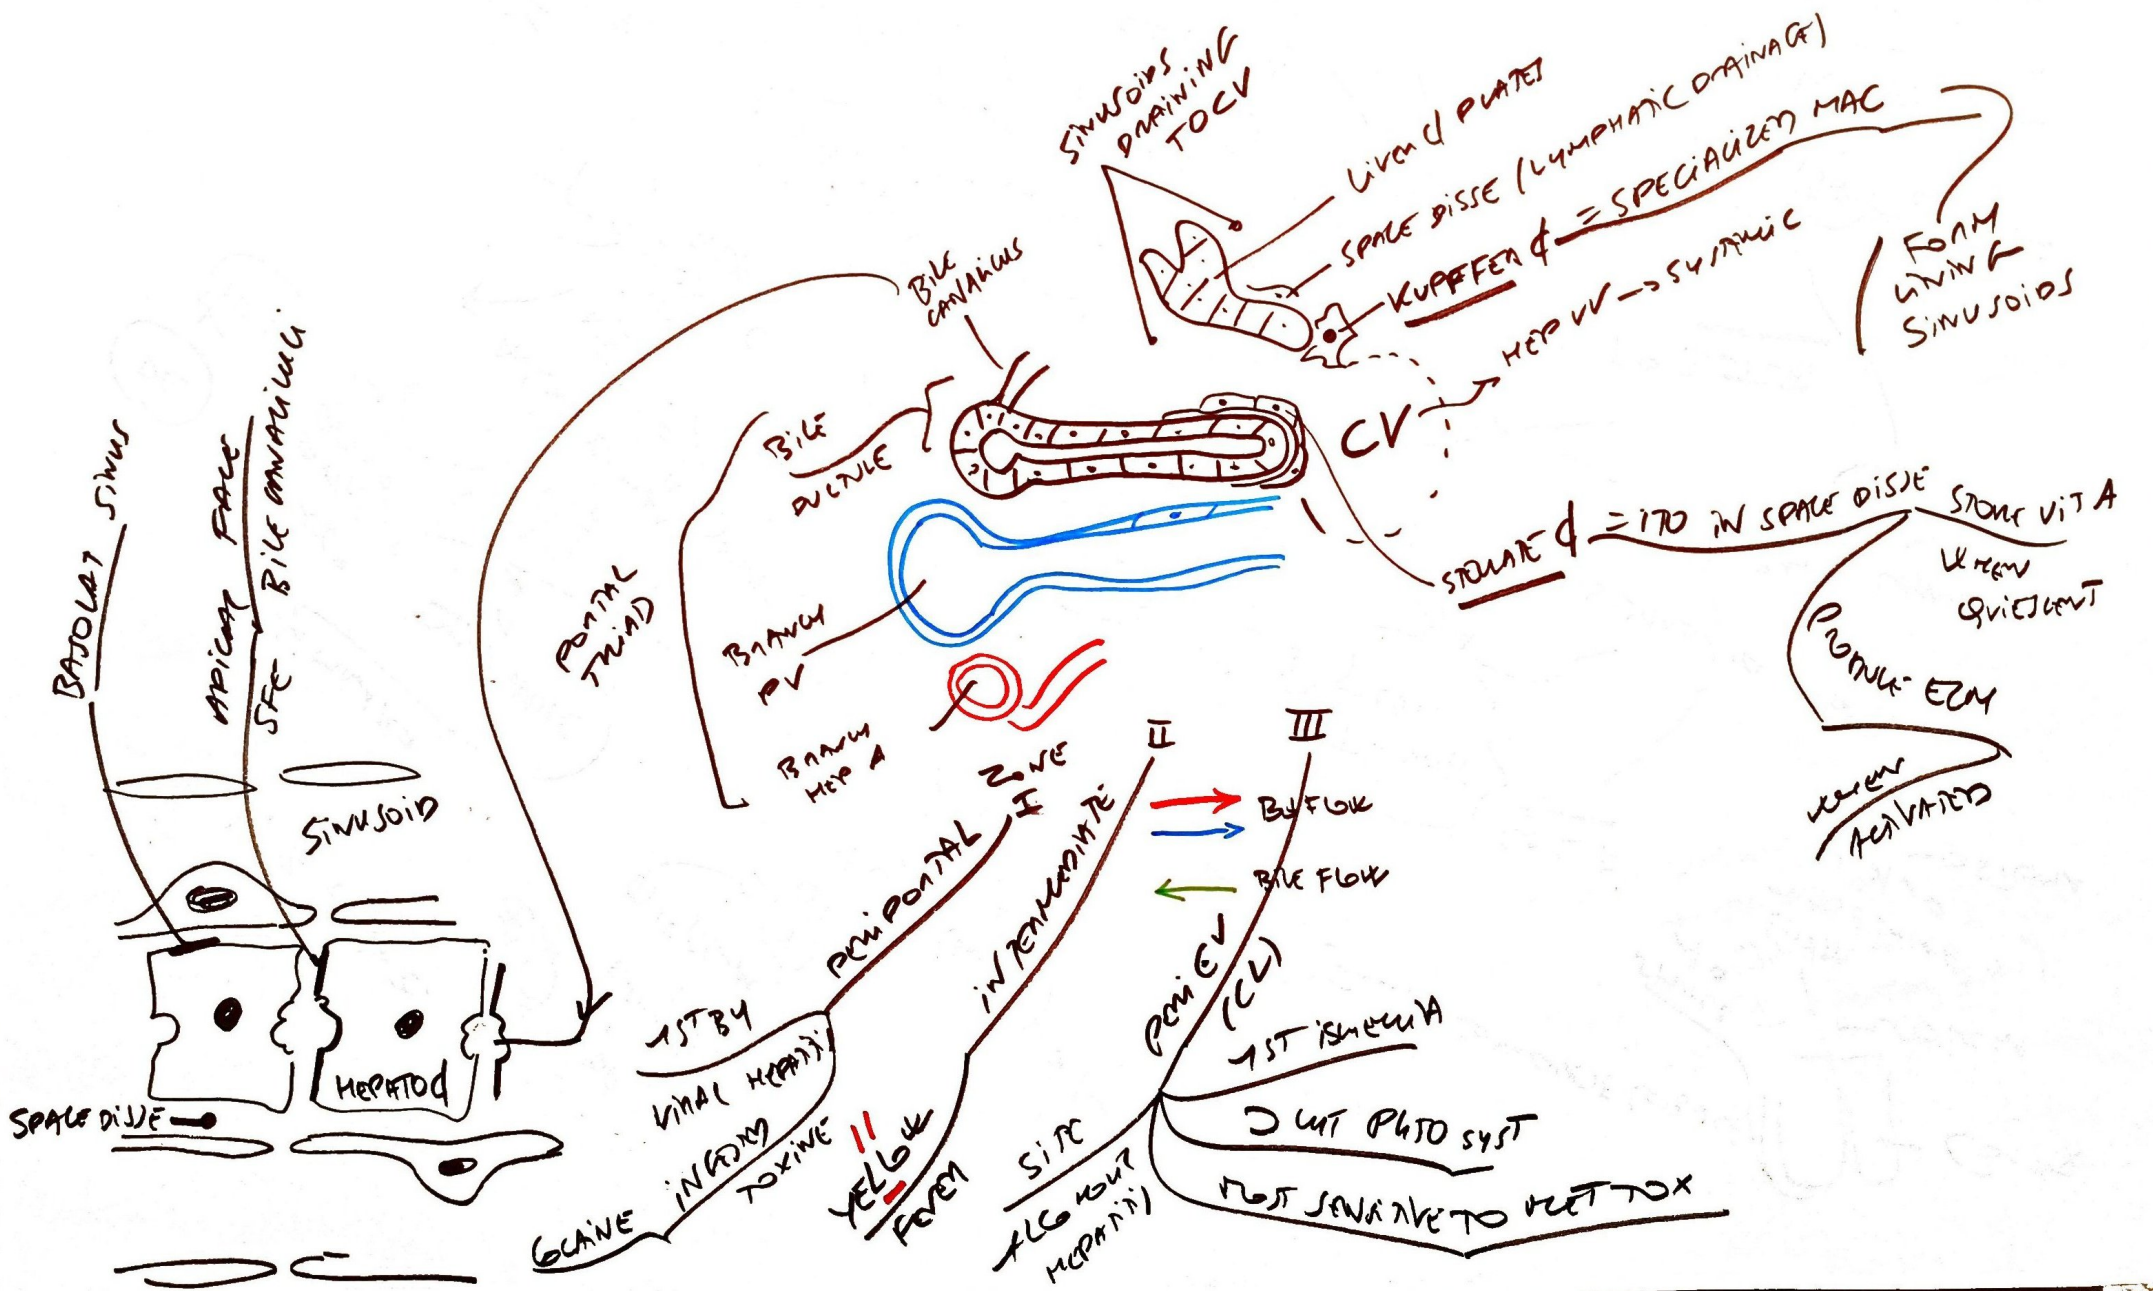 SINUSOIDS
DRAINING
TO CV
LIVER ₵ PLATES
SPACE DISSE (LYMPHATIC DRAINAGE)
KUPFFER ₵ = SPECIALIZED MAC
FORM
LINING
SINUSOIDS
HEP VV → SYSTEMIC
CV
BILE
CANALICUS
BILE
DUCTULE
PORTAL
TRIAD
BRANCH
PV
BRANCH
HEP A
STELLATE ₵ = ITO IN SPACE DISSE
STORE VIT A
WHEN
QUIESCENT
PRODUCE ECM
WHEN
ACTIVATED
BASOLAT SINUS
APICAL FACE
SFE BILE CANALICULI
SINUSOID
HEPATO ₵
SPACE DISSE
ZONE
I
II
III
PERIPORTAL
INTERMEDIATE
PERI CV
(CL)
BL FLOW
BILE FLOW
1ST BY
VIRAL HEPATITIS
INGESTED
TOXINE
COCAINE
YELLOW
FEVER
1ST ISCHEMIA
CYT P450 SYST
MOST SENSITIVE TO MET TOX
SITE
ALCOHOL
HEPATITIS